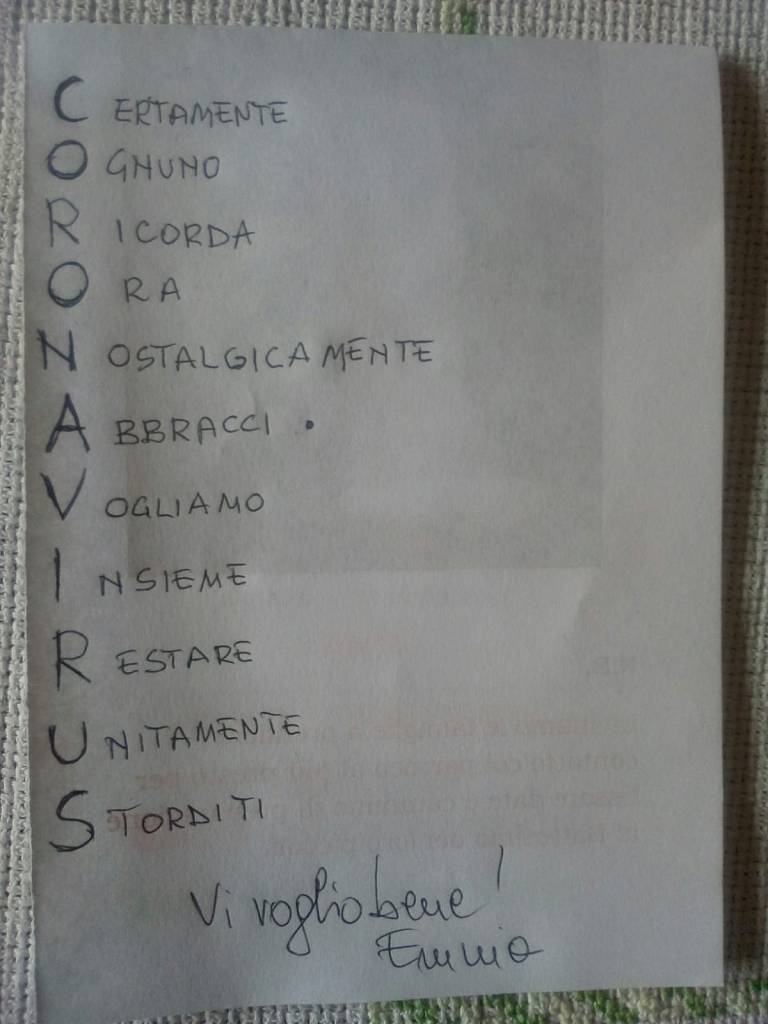 CERTAMENTE
OGNUNO
RICORDA
ORA
NOSTALGICAMENTE
ABBRACCI.
VOGLIAMO
INSIEME
RESTARE
UNITAMENTE
STORDITI
Vi voglio bene!